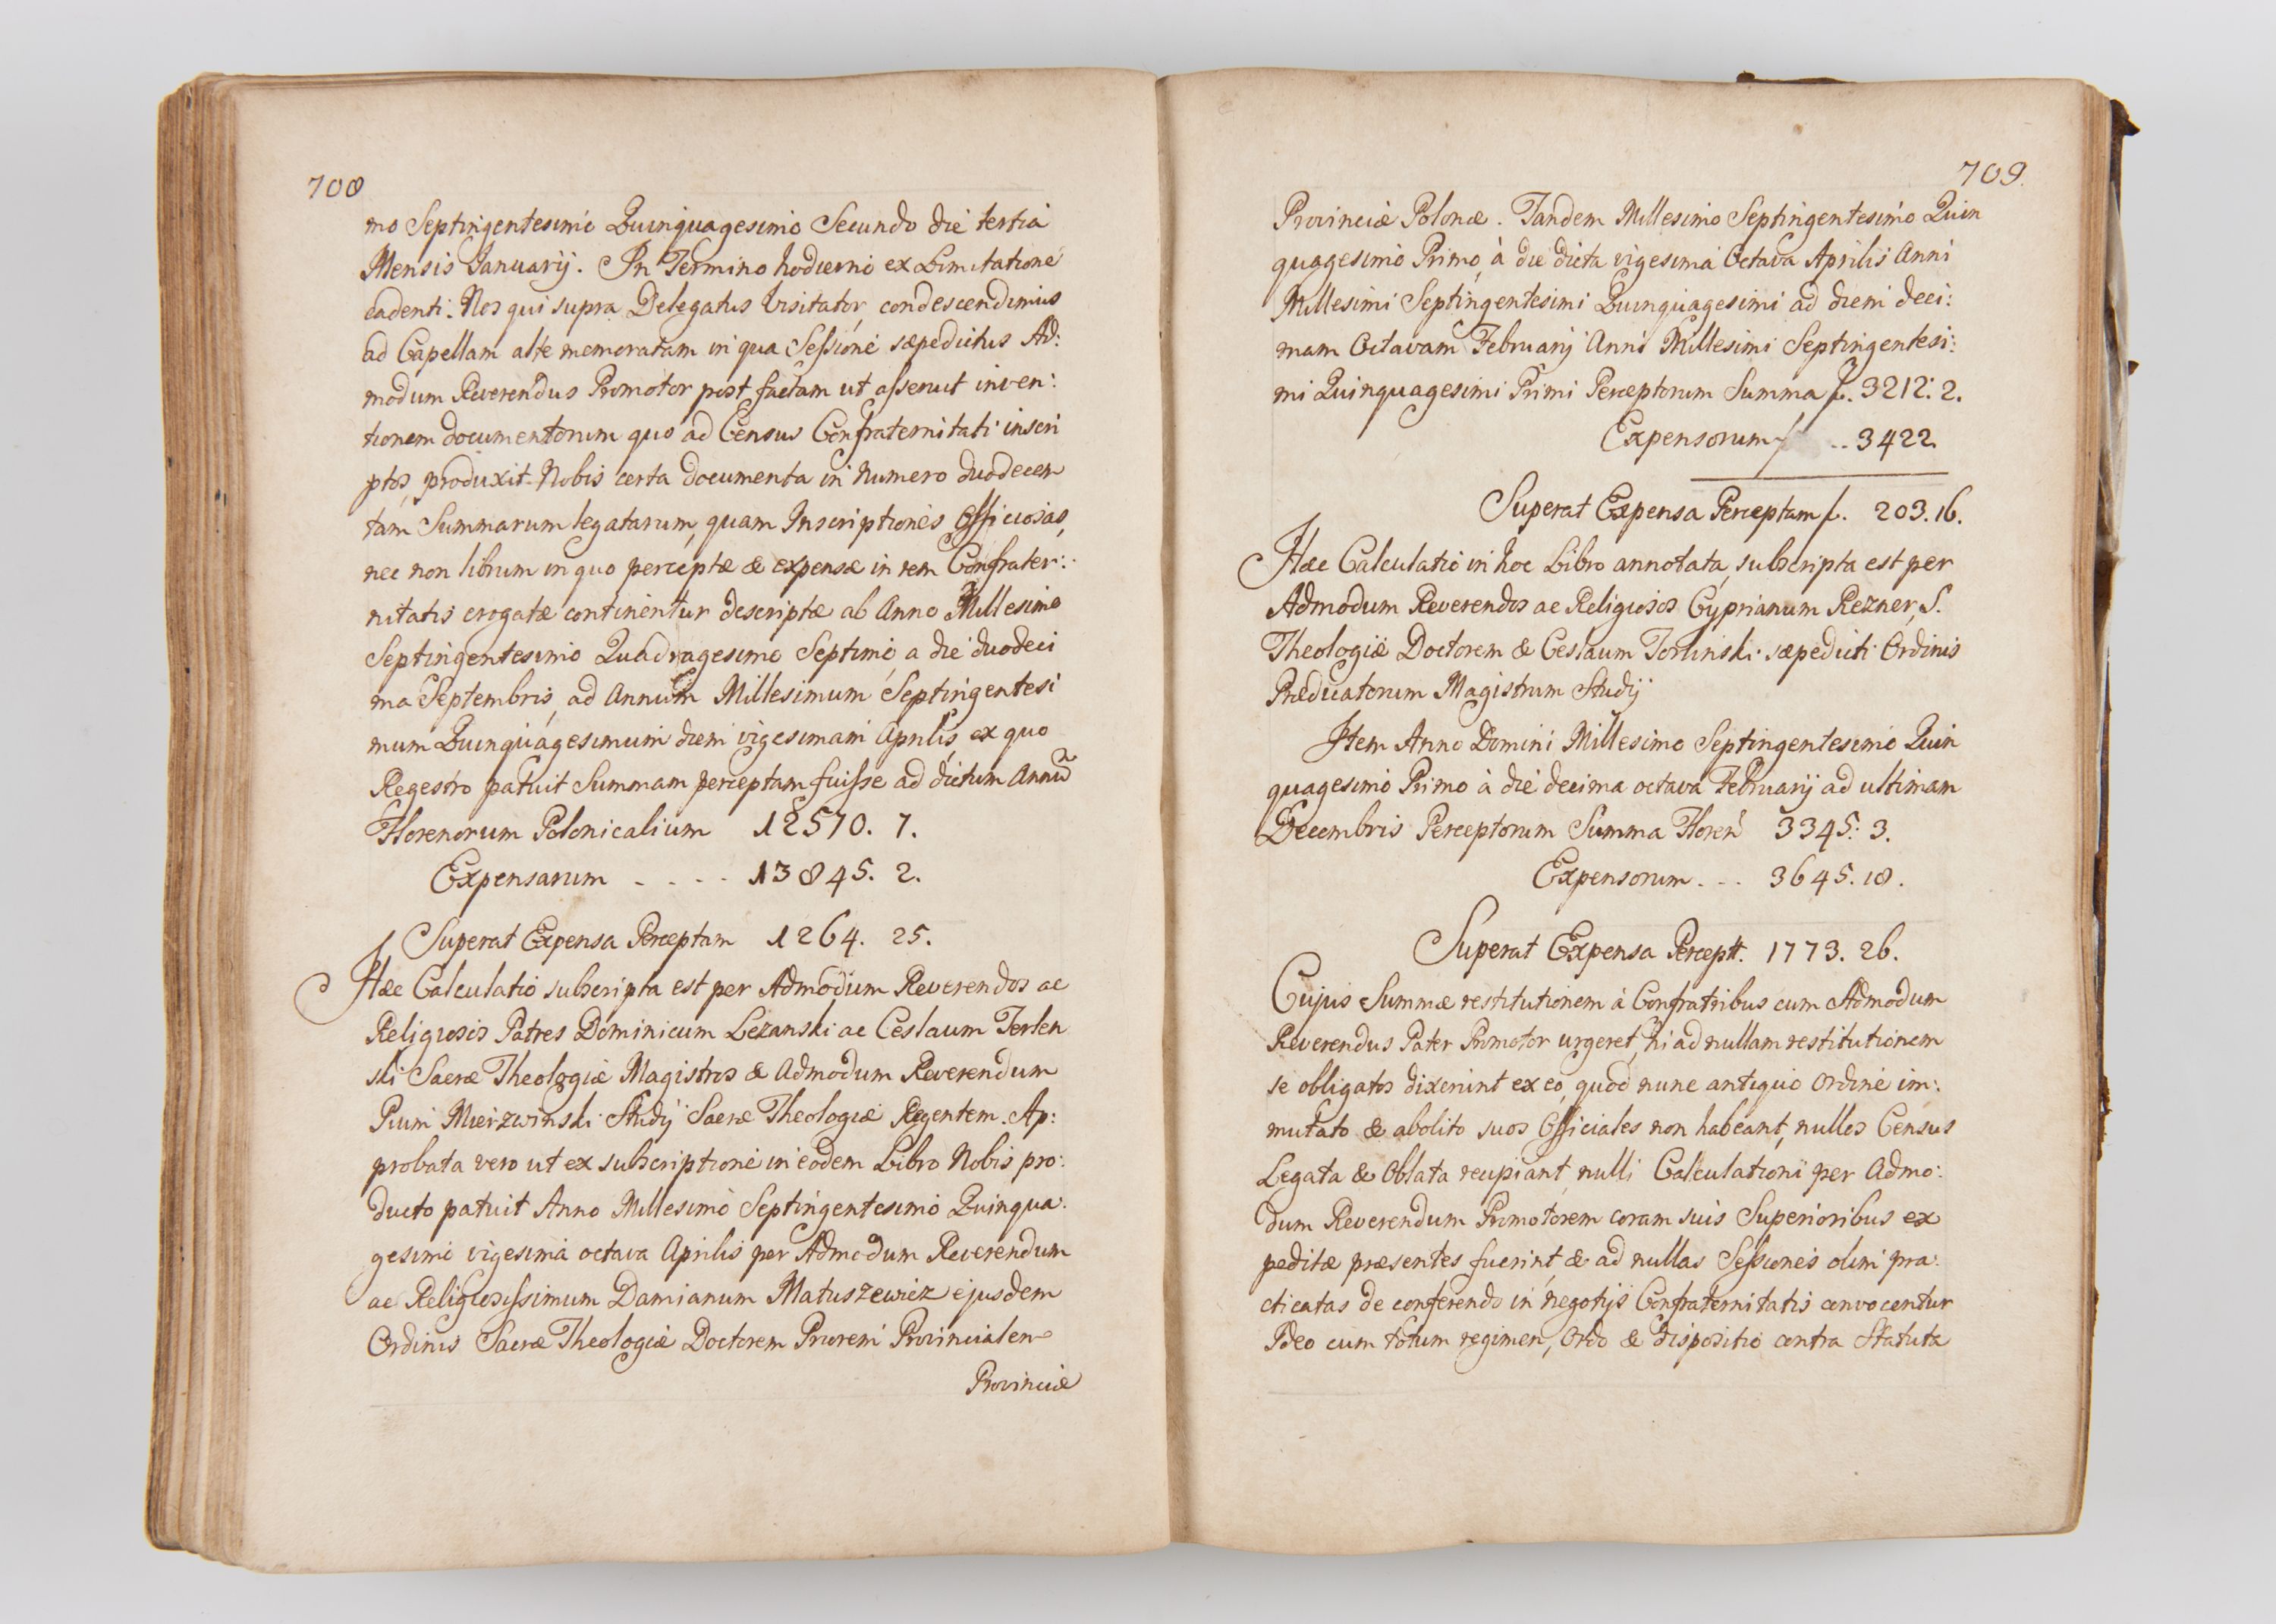 708
mo Septingentesimo Quinquagesimo Secundo die tertia
Mensis Januarij. In Termino hodierno ex Limitatione
cadenti. Nos qui supra Delegatus Visitator, condescendimus
ad Capellam alte memoratam in qua Sessione sæpedictus Ad:
modum Reverendus Promotor post factam ut asseruit inven:
tionem documentorum quo ad Census Confraternitati inscri
ptos, produxit Nobis certa documenta in numero duodecem
tam Summarum legatarum, quam Inscriptiones Officiosas,
nec non librum in quo perceptæ & expensæ in rem Confrater:
nitatis erogatæ continentur descriptæ ab Anno Millesimo
Septingentesimo Quadragesimo Septimo, a die duodeci
ma Septembris, ad Annum Millesimum Septingentesi
mum Quinquagesimum diem vigesimam Aprilis, ex quo
Regestro patuit Summam perceptam fuisse ad dictum Annū
Florenorum Polonicalium 12570. 7.
Expensarum - . - . - 13845. 2.
Superat Expensa Perceptam 1264. 25.
Hæc Calculatio subscripta est per Admodum Reverendos ac
Religiosos Patres Dominicum Lezanski ac Ceslaum Terlen
ski Sacræ Theologiæ Magistros & Admodum Reverendum
Pium Mierzwinski Studij Sacræ Theologiæ Regentem. Ap:
probata vero ut ex subscriptione in eodem Libro Nobis pro:
ducto patuit Anno Millesimo Septingentesimo Quinqua:
gesimo vigesima octava Aprilis per Admodum Reverendum
ac Religiosissimum Damianum Matuszewicz ejusdem
Ordinis Sacræ Theologiæ Doctorem Priorem Provincialem
Provinciæ
709.
Provinciæ Polonæ. Tandem Millesimo Septingentesimo Quin
quagesimo Primo, à die dicta vigesima Octava Aprilis Anni
Millesimi Septingentesimi Quinquagesimi ad diem deci:
mam Octavam Februarij Anni Millesimi Septingentesi:
mi Quinquagesimi Primi Perceptorum Summa f. 3212: 2.
Expensorum f. .. 3422.
Superat Expensa Perceptam f. 203. 16.
Hæc Calculatio in hoc Libro annotata, subscripta est per
Admodum Reverendos ac Religiosos Cyprianum Rezner, S.
Theologiæ Doctorem & Ceslaum Torlinski sæpedicti Ordinis
Prædicatorum Magistrum Studij
Item Anno Domini Millesimo Septingentesimo Quin
quagesimo Primo à die decima octava Februarij ad ultimam
Decembris Perceptorum Summa Floren 3345: 3.
Expensorum. - .. 3645. 18.
Superat Expensa Perceptt. 1773. 26.
Cujus Summæ restitutionem à Confratribus cum Admodum
Reverendus Pater Promotor urgeret, hi ad nullam restitutionem
se obligatos dixerint ex eo, quod nunc antiquo Ordine im:
mutato & abolito suos Officiales non habeant, nullos Census
Legata & Oblata recipiant, nulli Calculationi per Admo:
dum Reverendum Promotorem coram suis Superioribus ex
peditæ præsentes fuerint, & ad nullas Sessiones olim pra:
cticatas de conferendo in negotijs Confraternitatis convocentur
Ideo cum totum regimen, Ordo & dispositio contra Statuta